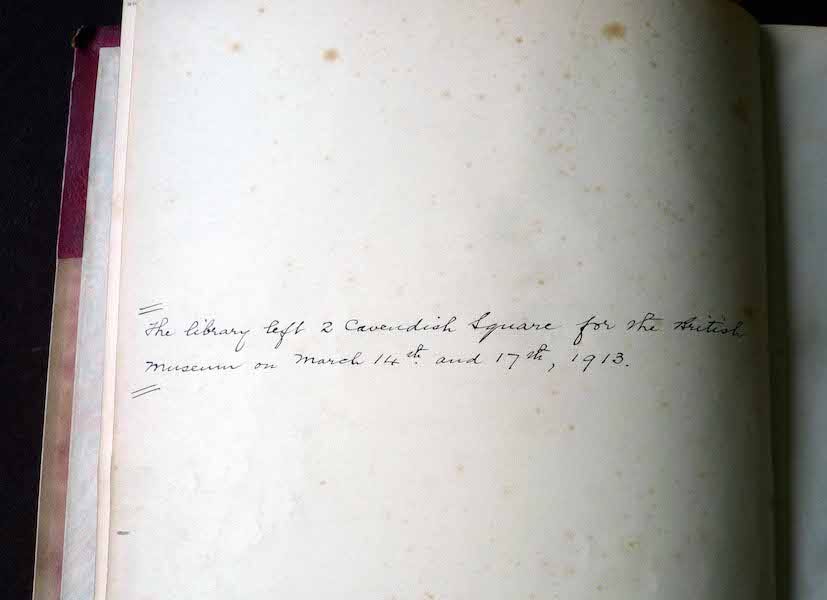 The library left 2 Cavendish Square for the British
Museum on March 14th. and 17th, 1913.